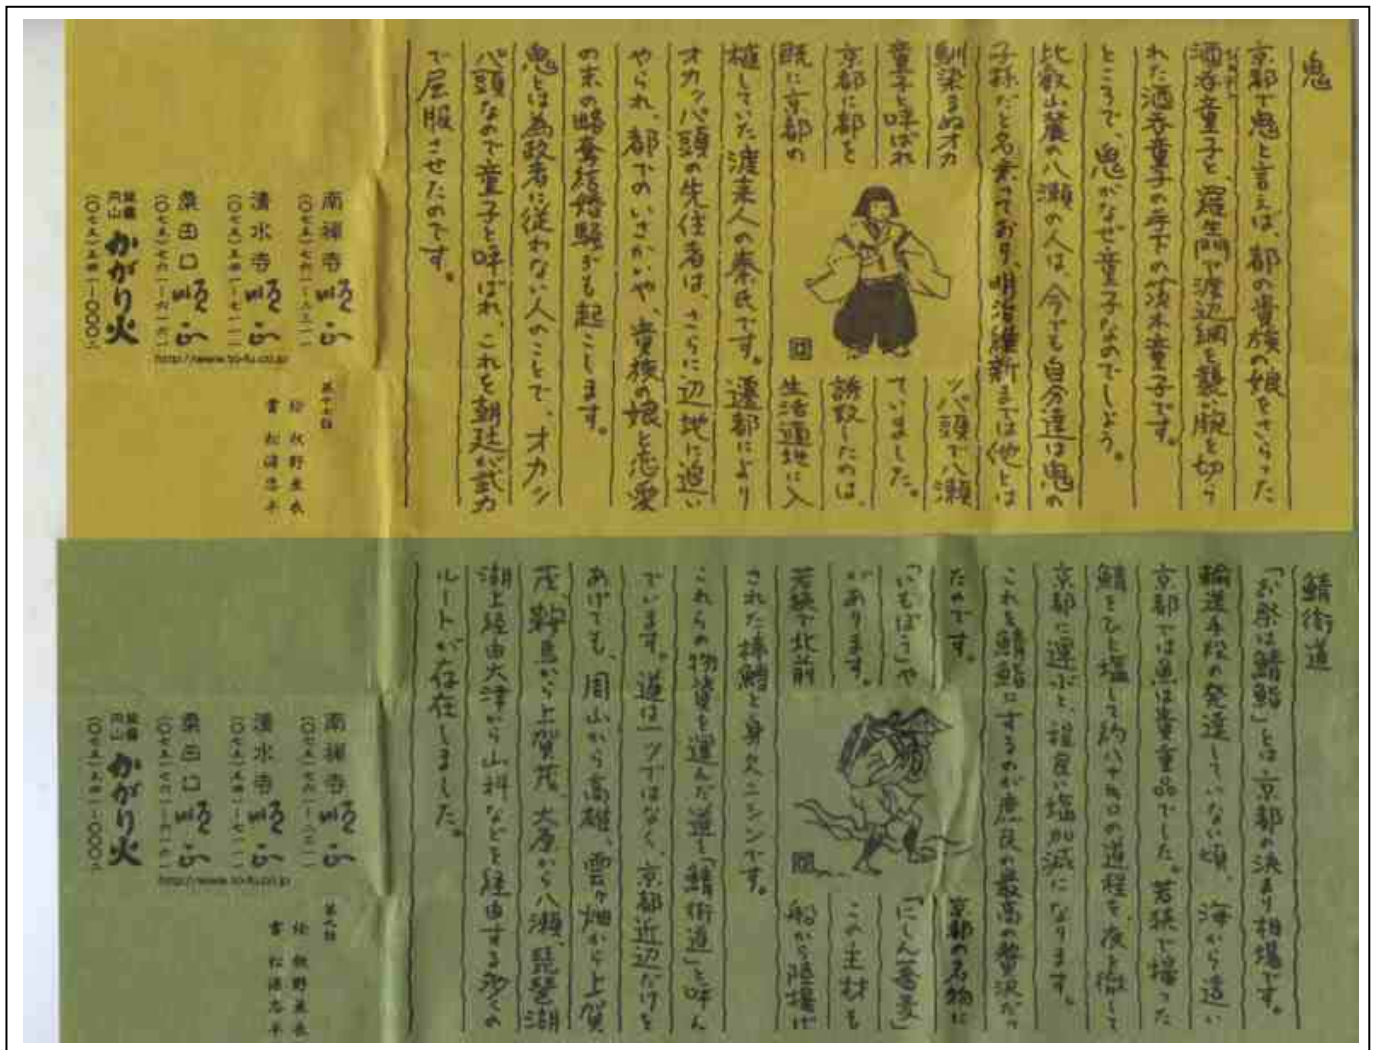 鬼
京都で鬼と言えば、都の貴族の娘をさらった
酒呑童子と、羅生門で渡辺綱を襲い腕を切ら
れた酒呑童子の手下の茨木童子です。
ところで、鬼がなぜ童子なのでしょう。
比叡山麓の八瀬の人は、今でも自分達は鬼の
子孫だと名乗っており、明治維新までは他とは
馴染まぬオカッパ頭で八瀬
童子と呼ばれていました。
京都に都を誘致したのは、
既に京都の生活適地に入
植していた渡来人の秦氏です。遷都により
オカッパ頭の先住者は、さらに辺地に追い
やられ、都でのいさかいや、貴族の娘と恋愛
の末の略奪結婚騒ぎも起こします。
鬼とは為政者に従わない人のことで、オカッ
パ頭なので童子と呼ばれ、これを朝廷が武力
で屈服させたのです。
第十話
絵 牧野亜衣
書 松浦忠平
南禅寺 順正
(〇七五)七六一-二三一一
清水寺 順正
(〇七五)五四一-七一一一
粟田口 順正
(〇七五)七六一-六一二一
http://www.to-fu.co.jp
祇園円山 かがり火
(〇七五)五四一-〇〇〇二
鯖街道
「お祭は鯖鮨」とは京都の決まり相場です。
輸送手段の発達していない頃、海から遠い
京都では魚は貴重品でした。若狭で揚った
鯖をひと塩して約八十キロの道程を、夜を徹して
京都に運ぶと、程良い塩加減になります。
これを鯖鮨にするのが庶民の最高の贅沢だっ
たのです。京都の名物に
「いもぼう」や「にしん蕎麦」
があります。この主材も
若狭で北前船から陸揚げ
された棒鱈と身欠ニシンです。
これらの物資を運んだ道を「鯖街道」と呼ん
でいます。道は一ツではなく、京都近辺だけを
あげても、周山から高雄、雲ケ畑から上賀
茂、鞍馬から上賀茂、大原から八瀬、琵琶湖
湖上経由大津から山科などを経由する多くの
ルートが存在しました。
第九話
絵 牧野亜衣
書 松浦忠平
南禅寺 順正
(〇七五)七六一-二三一一
清水寺 順正
(〇七五)五四一-七一一一
粟田口 順正
(〇七五)七六一-六一二一
http://www.to-fu.co.jp
祇園円山 かがり火
(〇七五)五四一-〇〇〇二